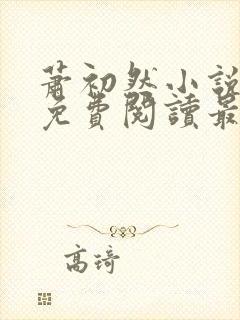 蕭初然小說
免費閱讀最
高琦